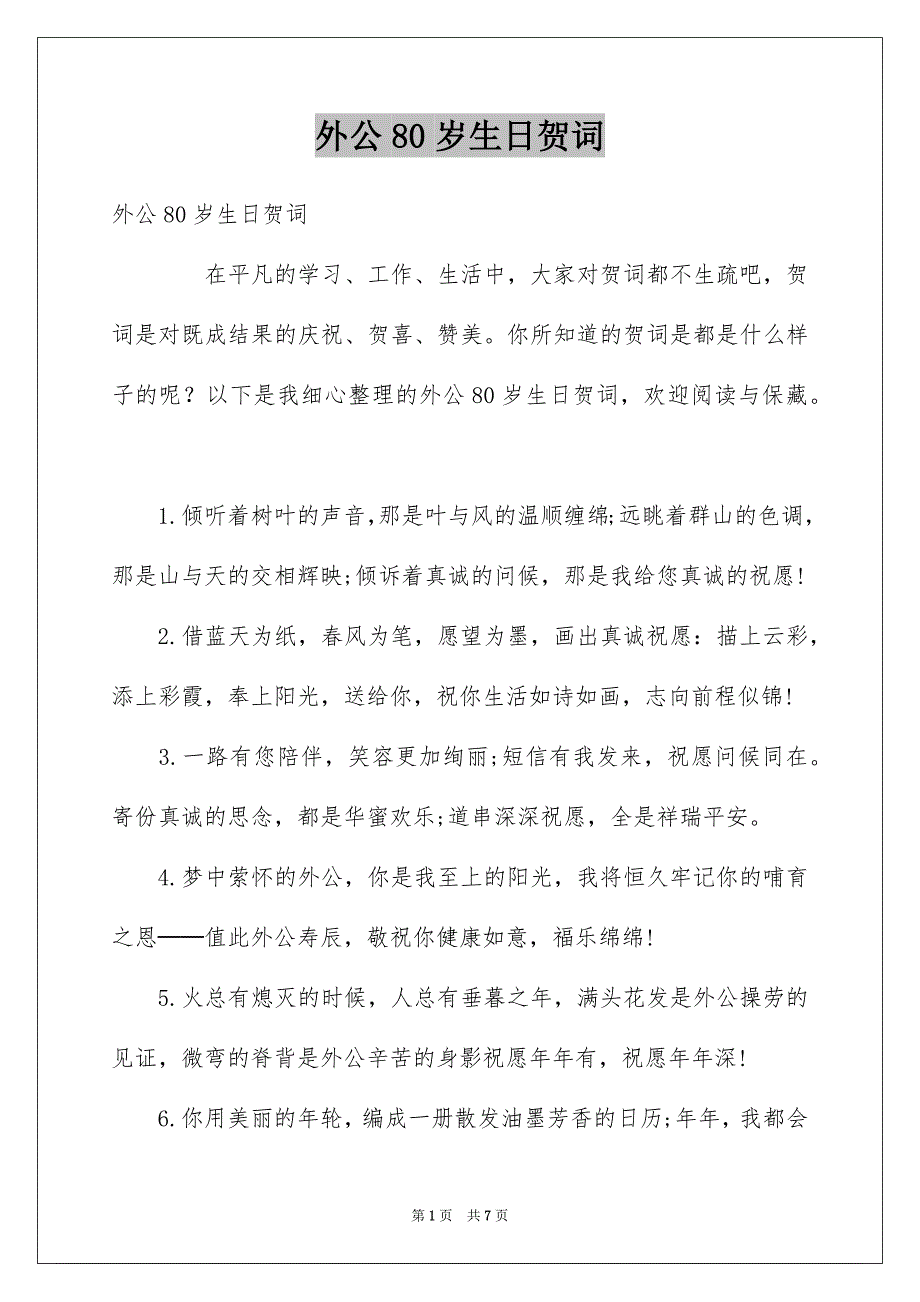 外公 80 岁生日贺词
外公 80 岁生日贺词
在平凡的学习、工作、生活中，大家对贺词都不生疏吧，贺
词是对既成结果的庆祝、贺喜、赞美。你所知道的贺词是都是什么样
子的呢？以下是我细心整理的外公 80 岁生日贺词，欢迎阅读与保藏。
1.倾听着树叶的声音，那是叶与风的温顺缠绵;远眺着群山的色调，
那是山与天的交相辉映;倾诉着真诚的问候，那是我给您真诚的祝愿!
2.借蓝天为纸，春风为笔，愿望为墨，画出真诚祝愿：描上云彩，
添上彩霞，奉上阳光，送给你，祝你生活如诗如画，志向前程似锦!
3.一路有您陪伴，笑容更加绚丽;短信有我发来，祝愿问候同在。
寄份真诚的思念，都是华蜜欢乐;道串深深祝愿，全是祥瑞平安。
4.梦中萦怀的外公，你是我至上的阳光，我将恒久牢记你的哺育
之恩——值此外公寿辰，敬祝你健康如意，福乐绵绵!
5.火总有熄灭的时候，人总有垂暮之年，满头花发是外公操劳的
见证，微弯的脊背是外公辛苦的身影祝愿年年有，祝愿年年深!
6.你用美丽的年轮，编成一册散发油墨芳香的日历;年年，我都会
第 1 页 共 7 页